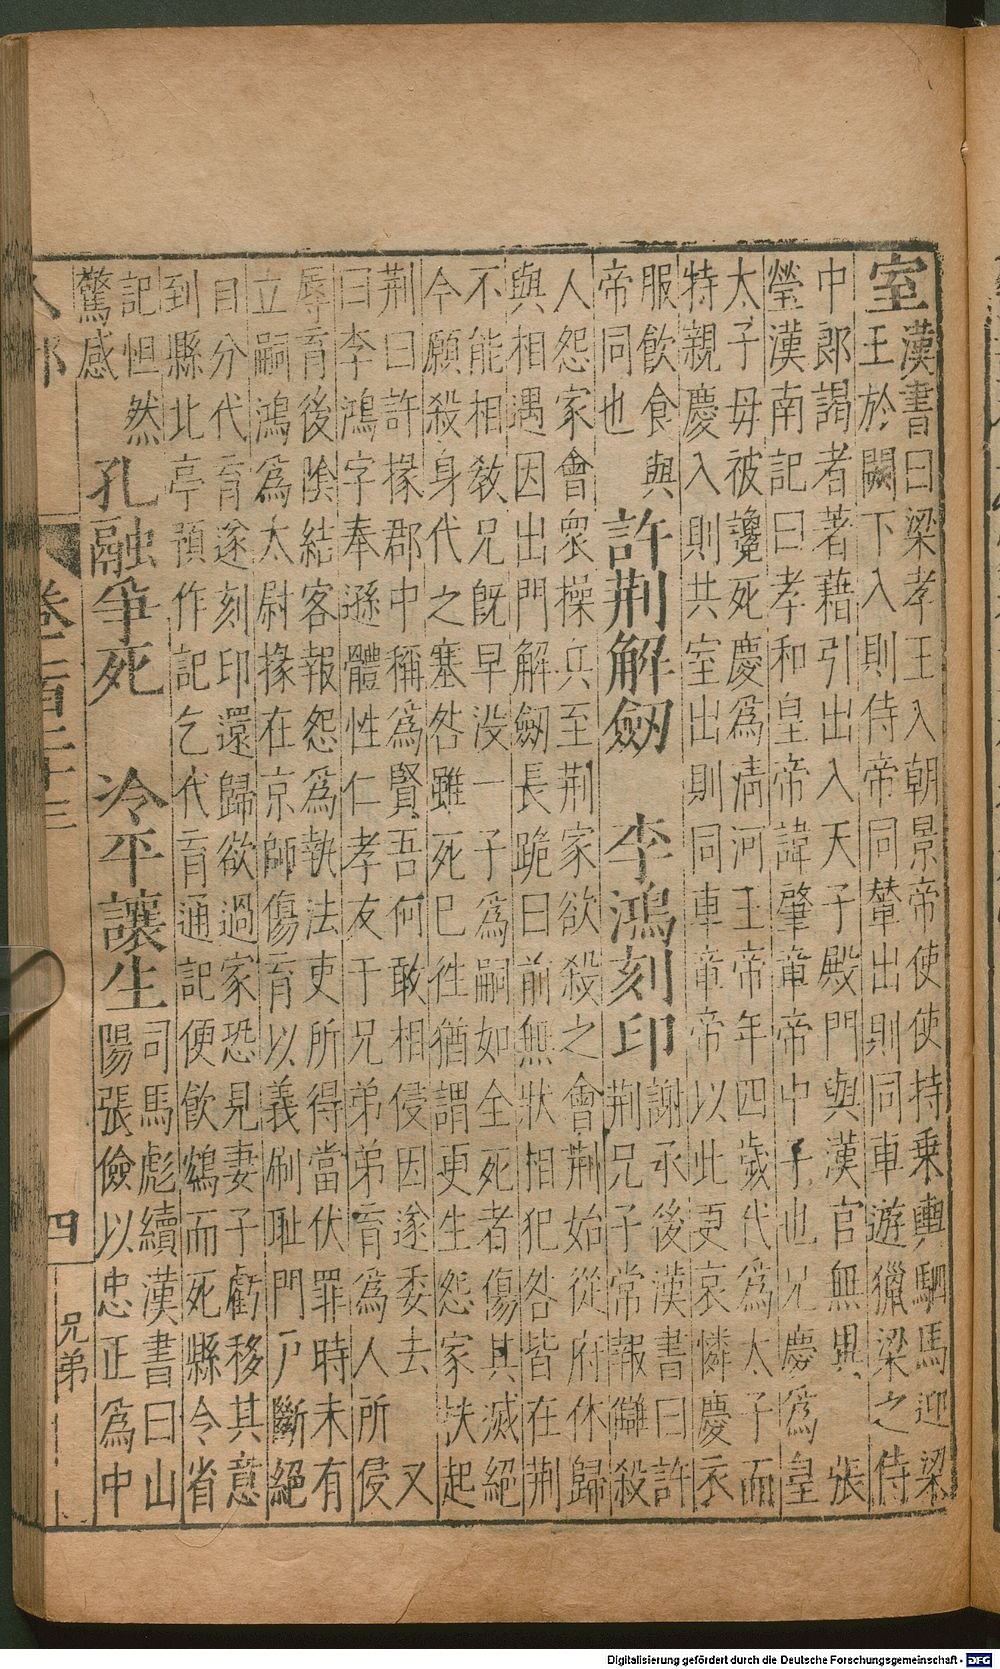 室
漢書曰梁孝王入朝景帝使使持乗輿駟馬迎梁
王於闕下入則侍帝同輦出則同車遊獵梁之侍
中郎謁者著藉引出入天子殿門與漢官無異 張
瑩漢南記曰孝和皇帝諱肇章帝中子也兄慶爲皇
太子毋被讒死慶爲清河王帝年四歲代爲太子而
特親慶入則共室出則同車章帝以此更哀憐慶衣
服飲食與
帝同也
許荆解劒 李鴻刻印
謝承後漢書曰許
荆兄子常報讎殺
人怨家會衆操兵至荆家欲殺之會荆始從府休歸
與相遇因出門解劒長跪曰前無狀相犯咎皆在荆
不能相敎兄旣早没一子爲嗣如全死者傷其滅絕
今願殺身代之塞咎雖死已徃猶謂更生怨家扶起
荆曰許掾郡中稱爲賢吾何敢相侵因遂委去 又
曰李鴻字奉遜體性仁孝友于兄弟弟育爲人所侵
辱育後陰結客報怨爲執法吏所得當伏罪時未有
立嗣鴻爲太尉掾在京師傷育以義刷耻門戸斷絕
自分代育遂刻印還歸欲過家恐見妻子虧移其意
到縣北亭預作記乞代育通記便飲鴆而死縣令省
記怛然
驚感
孔融爭死 冷平讓生
司馬彪續漢書曰山
陽張儉以忠正爲中
人部
卷二百二十三
四
兄弟
Digitalisierung gefördert durch die Deutsche Forschungsgemeinschaft - DFG